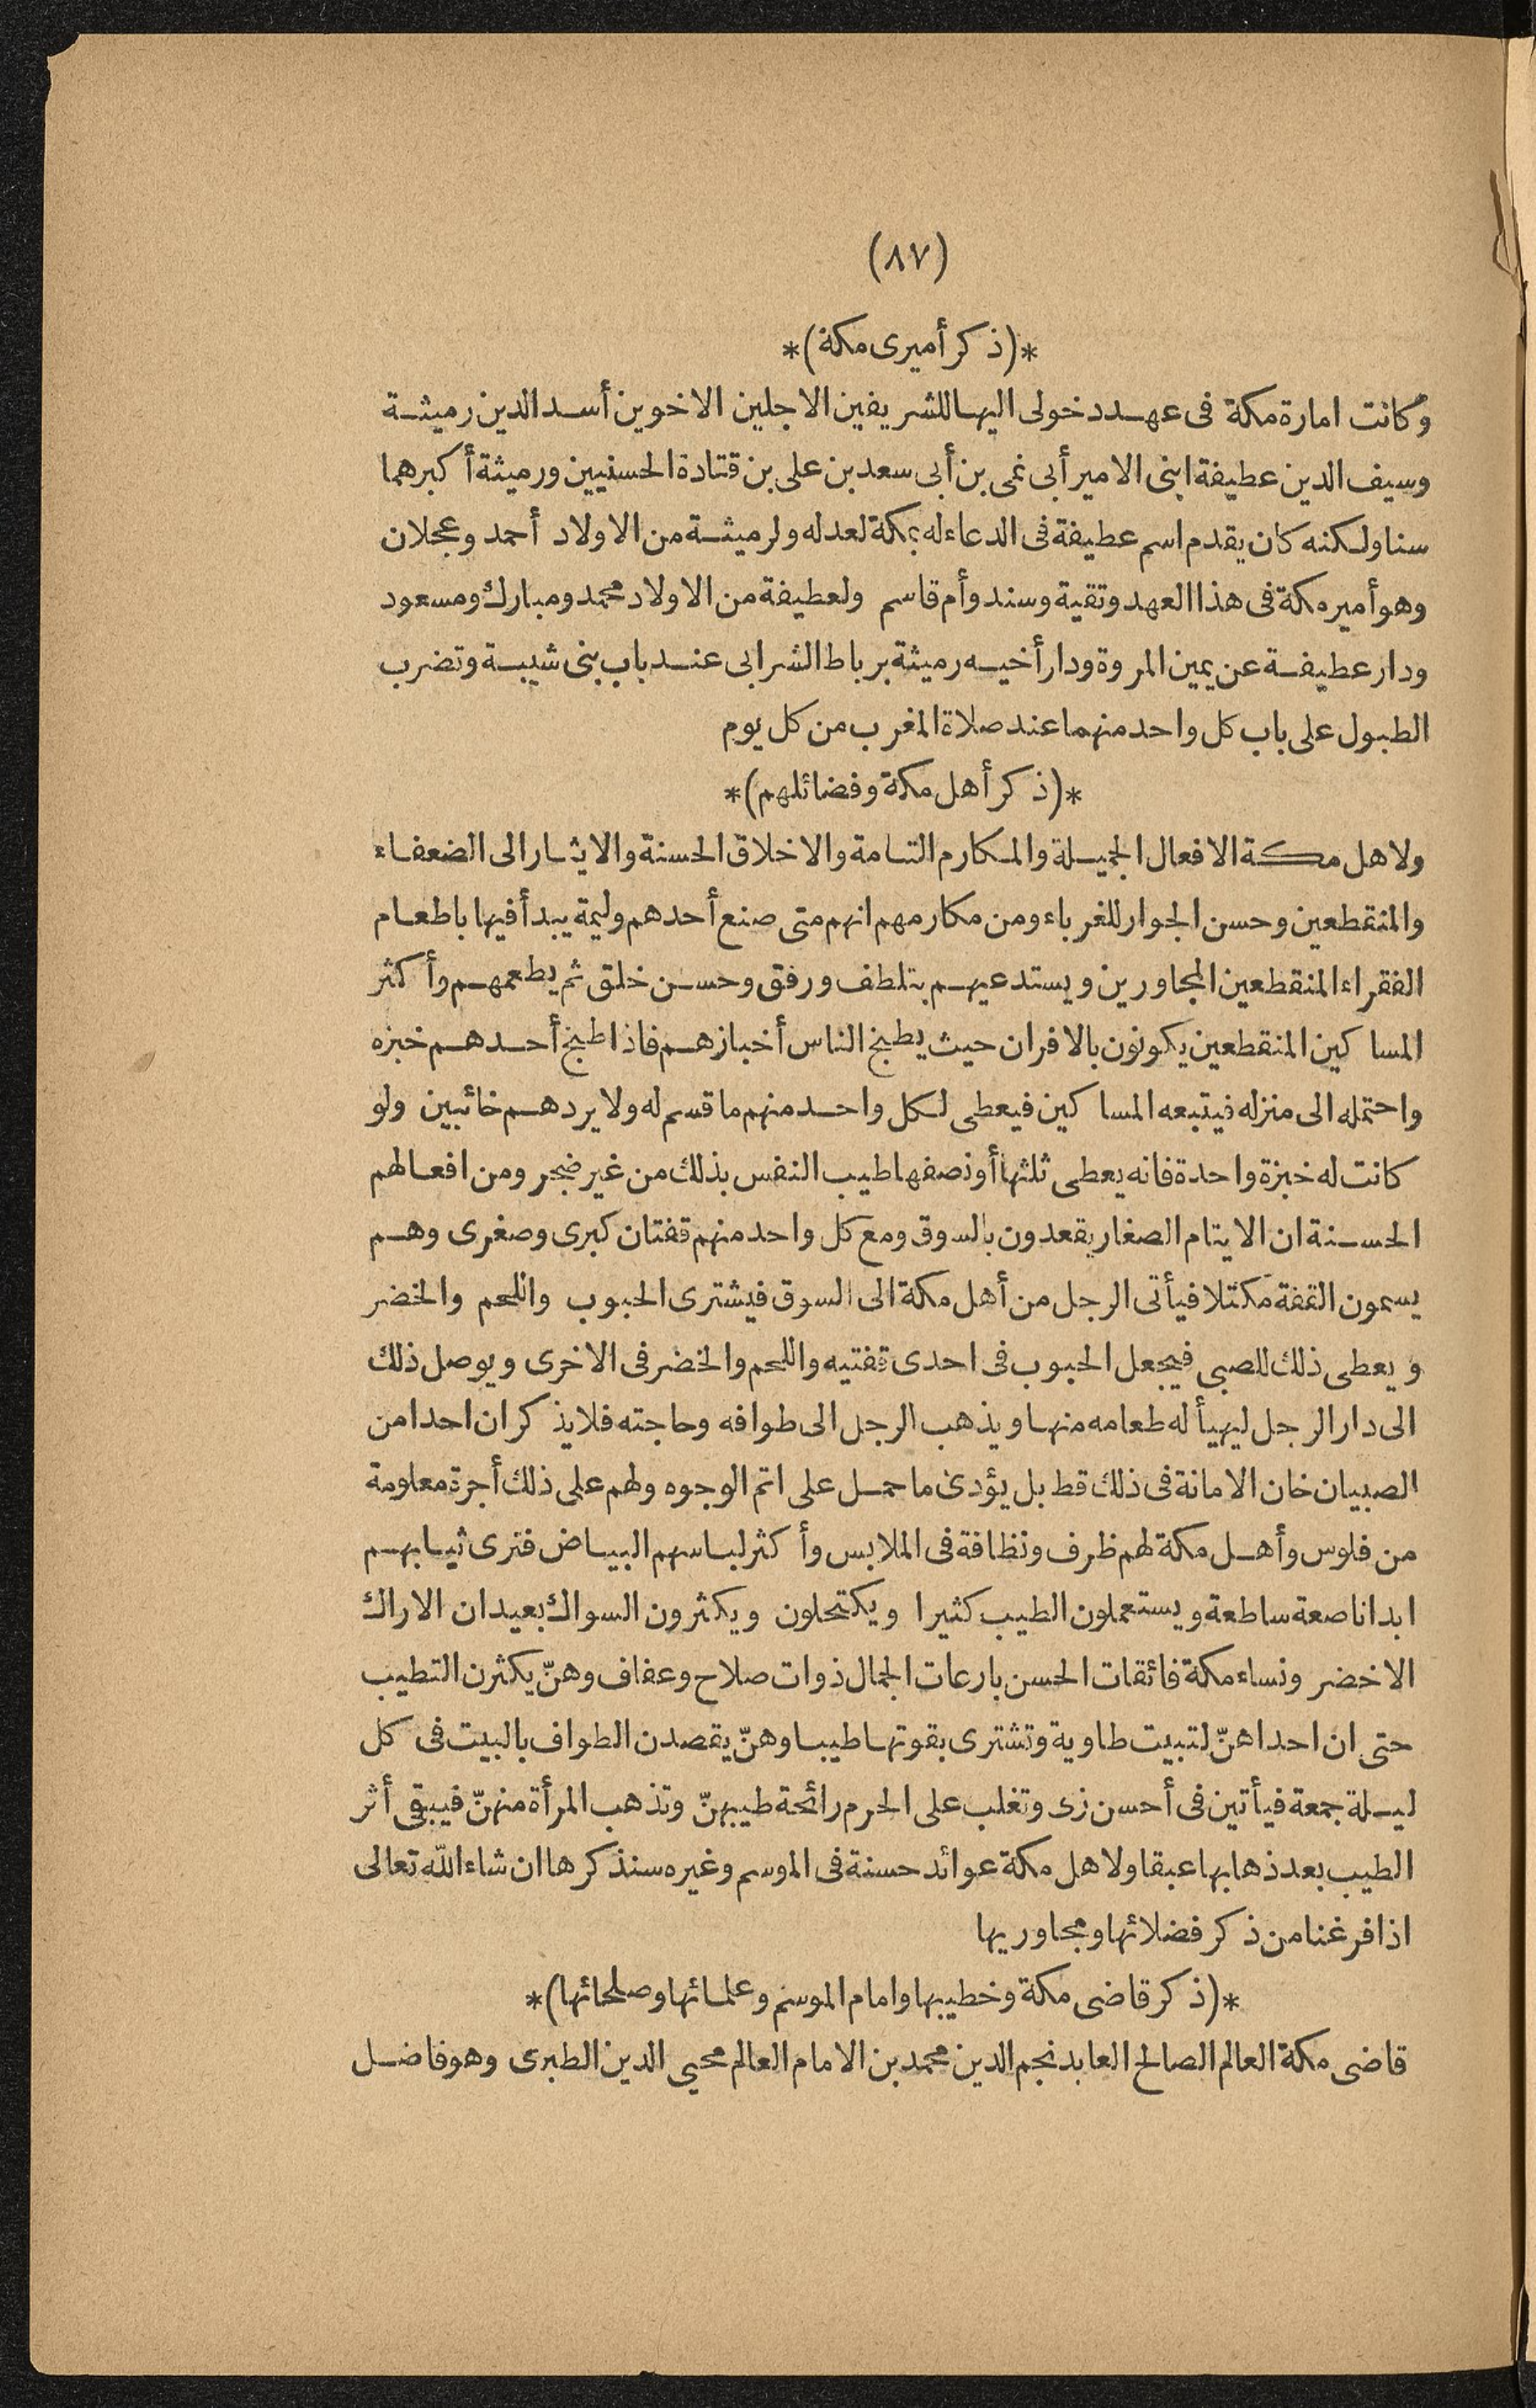 (٨٧)
*(ذكر أميرى مكة)*
وكانت امارة مكة فى عهد دخولى اليها للشريفين الاجلين الاخوين أسد الدين رميثة
وسيف الدين عطيفة ابنى الامير أبى نمى بن أبى سعد بن على بن قتادة الحسنيين ورميثة أكبرهما
سنا ولكنه كان يقدم اسم عطيفة فى الدعاء له بمكة لعدله ولرميثة من الاولاد أحمد وعجلان
وهو أمير مكة فى هذا العهد وتقية وسند وأم قاسم ولعطيفة من الاولاد محمد ومبارك ومسعود
ودار عطيفة عن يمين المروة ودار أخيه رميثة برباط الشرابى عند باب بنى شيبة وتضرب
الطبول على باب كل واحد منهما عند صلاة المغرب من كل يوم
*(ذكر أهل مكة وفضائلهم)*
ولاهل مكة الافعال الجميلة والمكارم التامة والاخلاق الحسنة والايثار الى الضعفاء
والمنقطعين وحسن الجوار للغرباء ومن مكارمهم انهم متى صنع أحدهم وليمة يبدأ فيها باطعام
الفقراء المنقطعين المجاورين ويستدعيهم بتلطف ورفق وحسن خلق ثم يطعمهم وأكثر
المساكين المنقطعين يكونون بالافران حيث يطبخ الناس أخبازهم فاذا طبخ أحدهم خبزه
واحتمله الى منزله فيتبعه المساكين فيعطى لكل واحد منهم ما قسم له ولا يردهم خائبين ولو
كانت له خبزة واحدة فانه يعطى ثلثها أو نصفها طيب النفس بذلك من غير ضجر ومن افعالهم
الحسنة ان الايتام الصغار يقعدون بالسوق ومع كل واحد منهم قفتان كبرى وصغرى وهم
يسمون القفة مكتلا فيأتى الرجل من أهل مكة الى السوق فيشترى الحبوب واللحم والخضر
ويعطى ذلك للصبى فيجعل الحبوب فى احدى قفتيه واللحم والخضر فى الاخرى ويوصل ذلك
الى دار الرجل ليهيأ له طعامه منها ويذهب الرجل الى طوافه وحاجته فلا يذكر ان احدا من
الصبيان خان الامانة فى ذلك قط بل يؤدى ما حمل على اتم الوجوه ولهم على ذلك أجرة معلومة
من فلوس وأهل مكة لهم ظرف ونظافة فى الملابس وأكثر لباسهم البياض فترى ثيابهم
ابدا ناصعة ساطعة ويستعملون الطيب كثيرا ويكتحلون ويكثرون السواك بعيدان الاراك
الاخضر ونساء مكة فائقات الحسن بارعات الجمال ذوات صلاح وعفاف وهنّ يكثرن التطيب
حتى ان احداهنّ لتبيت طاوية وتشترى بقوتها طيبا وهنّ يقصدن الطواف بالبيت فى كل
ليلة جمعة فيأتين فى أحسن زى وتغلب على الحرم رائحة طيبهنّ وتذهب المرأة منهنّ فيبقى أثر
الطيب بعد ذهابها عبقا ولاهل مكة عوائد حسنة فى الموسم وغيره سنذكرها ان شاء الله تعالى
اذا فرغنا من ذكر فضلائها ومجاوريها
*(ذكر قاضى مكة وخطيبها وامام الموسم وعلمائها وصلحائها)*
قاضى مكة العالم الصالح العابد نجم الدين محمد بن الامام العالم محيى الدين الطبرى وهو فاضل